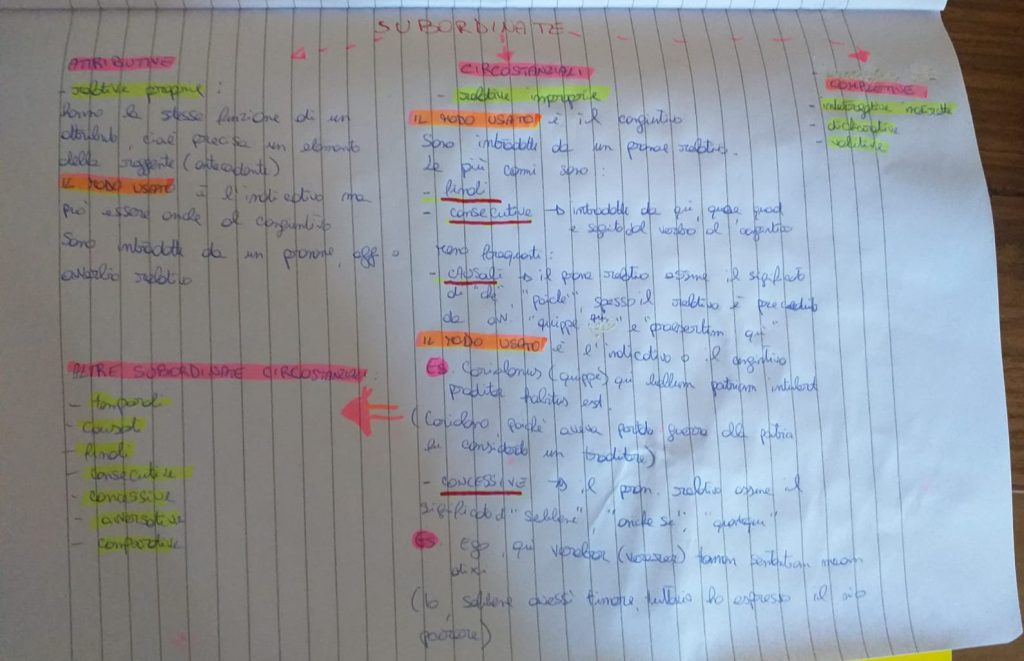 SUBORDINATE
ATTRIBUTIVE
- relative proprie :
hanno la stessa funzione di un
attributo, cioè precisa un elemento
della reggente (antecedente)
IL MODO USATO è l'indicativo ma
può essere anche al congiuntivo
Sono introdotte da un pronome, agg o
avverbio relativo
ALTRE SUBORDINATE CIRCOSTANZIALI :
- temporali
- causali
- finali
- consecutive
- concessive
- avversative
- comparative
CIRCOSTANZIALI
- relative improprie
IL MODO USATO è il congiuntivo
Sono introdotte da un pronome relativo.
Le più comuni sono :
- finali
- consecutive → introdotte da qui, quae quod
e seguite dal verbo al congiuntivo
meno frequenti :
- CAUSALI → il pronome relativo assume il significato
di "che", "poiché", spesso il relativo è preceduto
da avv. "quippe qui" e "praesertim qui"
IL MODO USATO è l'indicativo o il congiuntivo
Es. Coriolanus (quippe) qui bellum patriam intulerat
proditor habitus est.
(Coriolano poiché aveva portato guerra alla patria
fu considerato un traditore)
- CONCESSIVE → il pron. relativo assume il
significato di "sebbene", "anche se",
Es. Ego, qui verebar (vererer) tamen sententiam meam
dixi
(Io, sebbene avessi timore, tuttavia ho espresso il mio
parere)
COMPLETIVE
- interrogative indirette
- dichiarative
- volitive